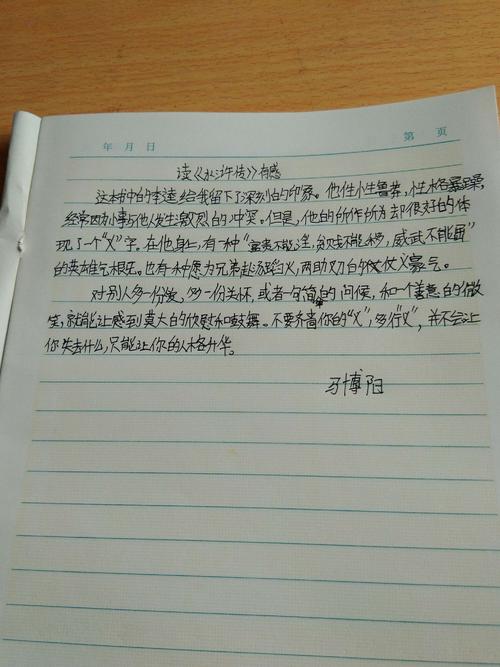 年 月 日 第 页
读《水浒传》有感
这本书中的李逵给我留下了深刻的印象。他性生鲁莽,性格暴躁,
经常因为小事与他人发生激烈的冲突。但是,他的所作所为却很好的体
现了一个“义”字。在他身上,有一种“富贵不能淫,贫贱不能移,威武不能屈”
的英雄气根。也有一种愿为兄弟赴汤蹈火,两助刀的仗义豪气。
对别人多一份,多一份关怀,或者一句简单的问候,和一个善意的微
笑,就能让感到莫大的欣慰和鼓舞。不要吝啬你的“义”,多行“义”,并不会让
你失去什么,只能让你的人格升华。
马博阳